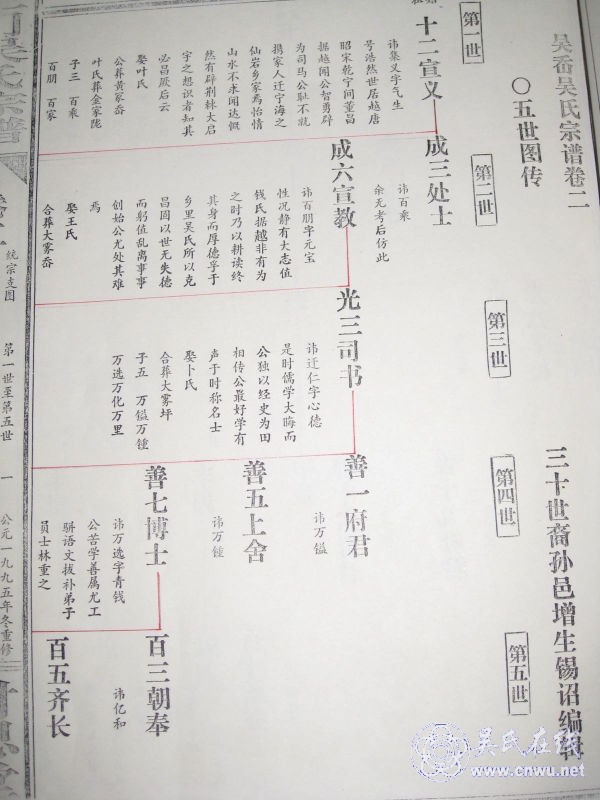 吴岙吴氏宗谱卷二
〇五世图传
三十世裔孙邑增生锡诏编辑
第一世
十二宣义
讳集义字气生
号浩然世居越唐
昭宋乾宁间董昌
据越闻公智勇辟
为司马公耻不就
携家人迁宁海之
仙岩乡家焉怡情
山水不求闻达慨
然有辟荆林大启
宇之想识者知其
必昌厥后云
娶叶氏
公葬黄冢岙
叶氏葬金家陇
子三 百乘
百朋 百家
第二世
成三处士
讳百乘
余无考后仿此
成六宣教
讳百朋字元宝
性况静有大志值
钱氏据越非有为
之时乃以耕读终
其身而厚德孚于
乡里吴氏所以克
昌固以世无失德
而躬值乱离事事
创始公尤处其难
焉
娶王氏
合葬大雾岙
第三世
光三司书
讳迁仁字心德
是时儒学大晦而
公独以经史为田
相传公最好学有
声于时称名士
娶卜氏
合葬大雾坪
子五 万镒万锺
万选万化万里
第四世
善一府君
讳万镒
善五上舍
讳万锺
善七博士
讳万选字青钱
公苦学善属尤工
骈语文拔补弟子
员士林重之
第五世
百三朝奉
讳亿和
百五齐长
统宗支图
第一世至第五世
一
公元一九九五年冬重修
吴氏在线
www.cnwu.net